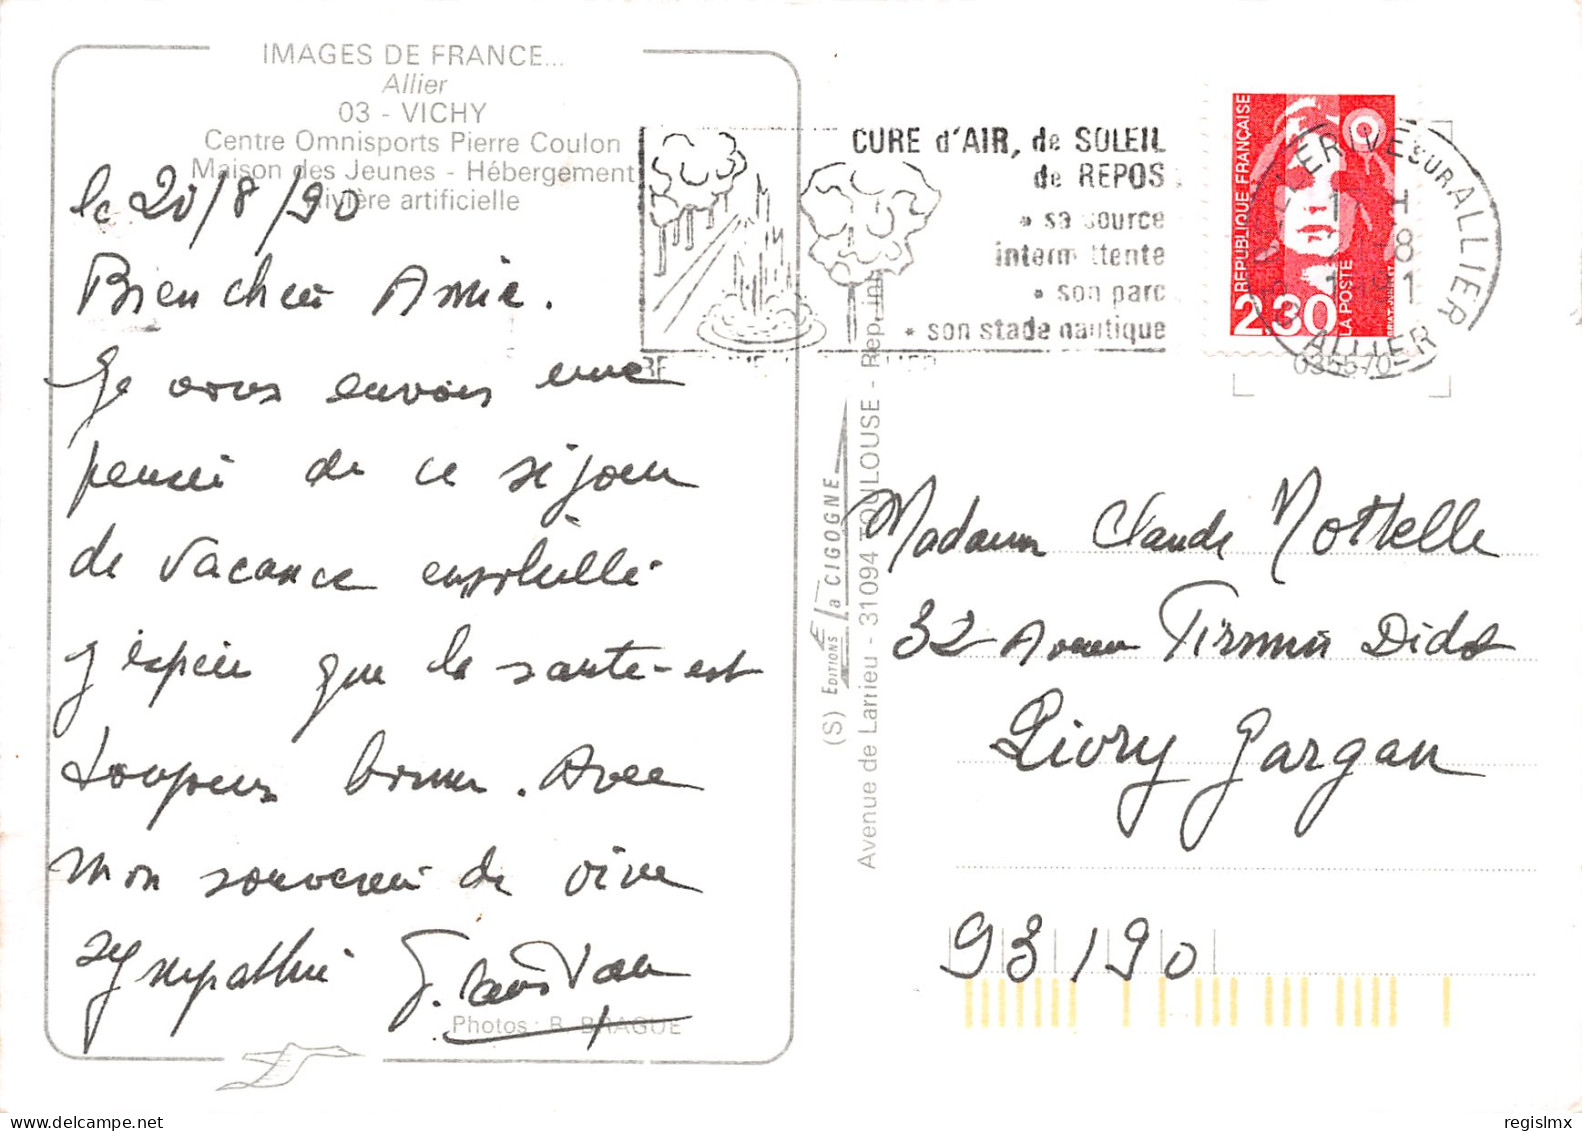 IMAGES DE FRANCE...
Allier
03 - VICHY
Centre Omnisports Pierre Coulon
Maison des Jeunes - Hébergement
Rivière artificielle
le 20/8/90
Bien chère Amie.
Je vous envois une
pensée de ce séjour
de vacance ensoleillé
j'espère que la santé-est
toujours bonne. Avec
mon souvenir de vive
sympathie
Photos : R. BRAGUE
(S) EDITIONS La CIGOGNE
Avenue de Larrieu - 31094 TOULOUSE - Rep. int
CURE d'AIR, de SOLEIL
de REPOS
* sa source
intermittente
* son parc
* son stade nautique
REPUBLIQUE FRANÇAISE
2,30
LA POSTE
BRIAT-JUMELET
BELLERIVE SUR ALLIER
ALLIER
035570
Madame Claude Mottelle
32 Avenue Firmin Didot
Livry Gargan
93190
regislmx